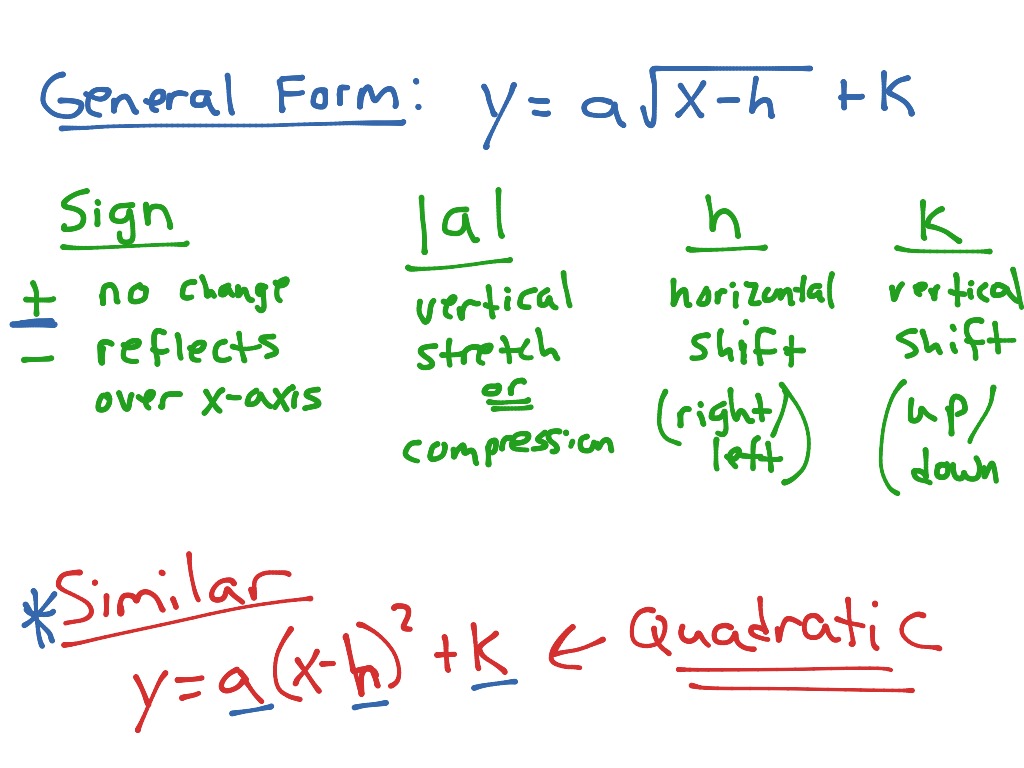 General Form: y = a√(x-h) + k
Sign |a| h k
+ no change vertical horizontal vertical
- reflects stretch shift shift
over x-axis or (right/ (up/
compression left) down)
*Similar
y = a(x-h)² + k ← Quadratic